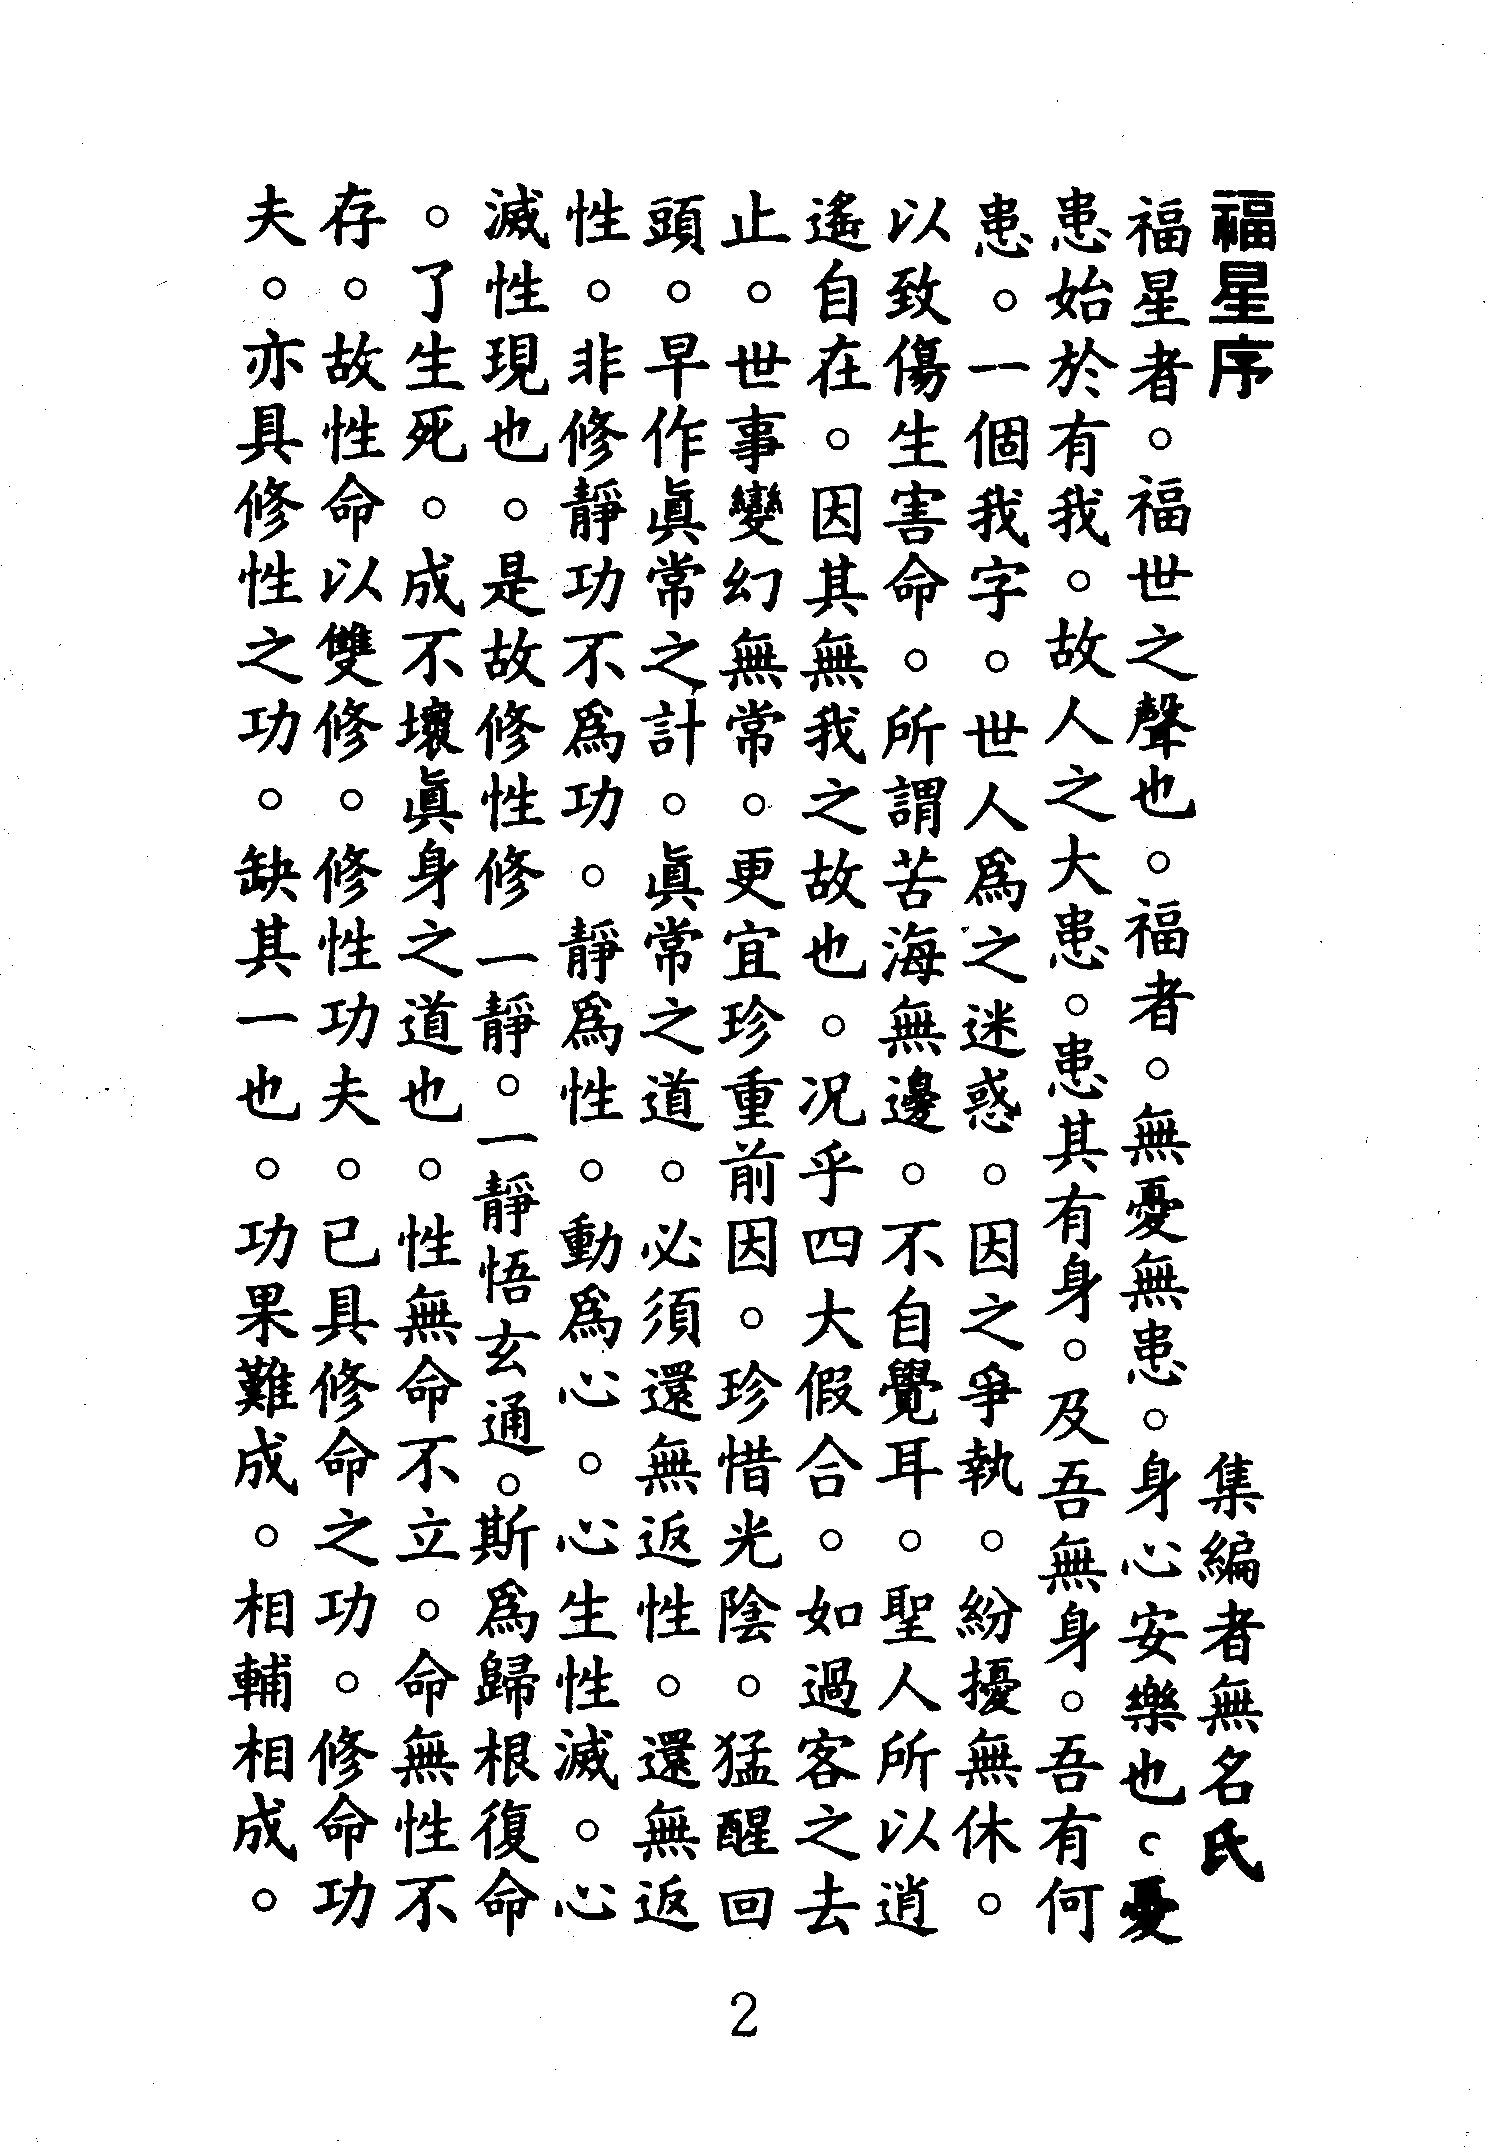 福星序　集編者無名氏
福星者。福世之聲也。福者。無憂無患。身心安樂也。憂
患始於有我。故人之大患。患其有身。及吾無身。吾有何
患。一個我字。世人爲之迷惑。因之爭執。紛擾無休。
以致傷生害命。所謂苦海無邊。不自覺耳。聖人所以逍
遙自在。因其無我之故也。况乎四大假合。如過客之去
止。世事變幻無常。更宜珍重前因。珍惜光陰。猛醒回
頭。早作眞常之計。眞常之道。必須還無返性。還無返
性。非修靜功不爲功。靜爲性。動爲心。心生性滅。心
滅性現也。是故修性修一靜。一靜悟玄通。斯爲歸根復命
。了生死。成不壞眞身之道也。性無命不立。命無性不
存。故性命以雙修。修性功夫。已具修命之功。修命功
夫。亦具修性之功。缺其一也。功果難成。相輔相成。
2